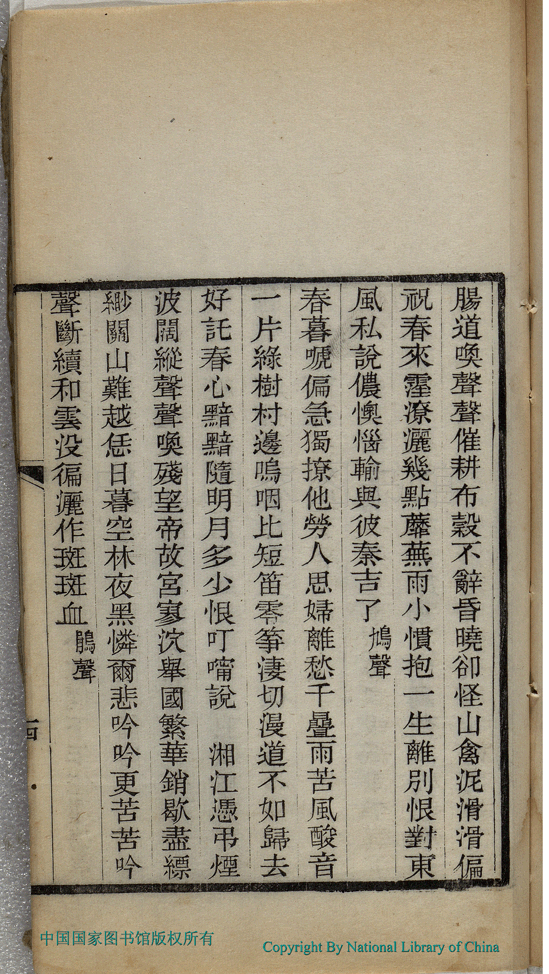 腸道喚聲聲催耕布穀不辭昏曉卻怪山禽泥滑滑偏
祝春來霪潦灑幾點蘼蕪雨小慣抱一生離別恨對東
風私說儂懊惱輸與彼秦吉了 鳩聲
春暮唬偏急獨撩他勞人思婦離愁千疊雨苦風酸音
一片綠樹村邊嗚咽比短笛零箏淒切漫道不如歸去
好託春心黯黯隨明月多少恨叮嚀說　湘江憑弔煙
波闊縱聲聲喚殘望帝故宮寥泬舉國繁華銷歇盡縹
緲關山難越恁日暮空林夜黑憐爾悲吟吟更苦苦吟
聲斷續和雲没徧灑作斑斑血 鵑聲
四
中国国家图书馆版权所有
Copyright By National Library of China